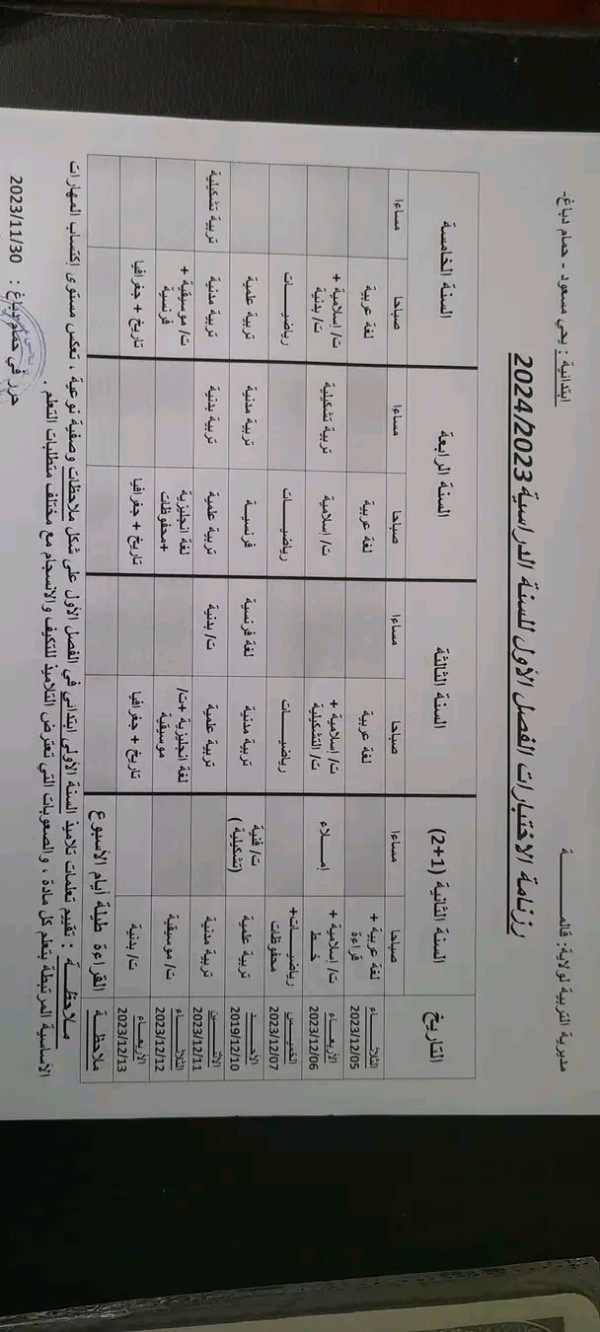 مديرية التربية لولاية: قالمـــــــــة
ابتدائية : يحي مسعود - حمام دباغ-
رزنامة الاختبارات الفصل الأول للسنة الدراسية 2024/2023
التاريخ السنة الثانية (1+2) السنة الثالثة السنة الرابعة السنة الخامسة
صباحا مساءا صباحا مساءا صباحا مساءا صباحا مساءا
الثلاثـــاء 2023/12/05 لغة عربية + قراءة لغة عربية لغة عربية لغة عربية
الأربعـاء 2023/12/06 ت/ إسلامية + خط إمـــلاء ت/ إسلامية + ت/ التشكيلية ت/ إسلامية تربية تشكيلية ت/ إسلامية + ت/ بدنية
الخميـس 2023/12/07 رياضيـــات+ محفوظات رياضيـــات رياضيـــات رياضيـــات
الأحــد 2019/12/10 تربية علمية ت/ فنية (تشكيلية) تربية مدنية لغة فرنسية فرنسيـــة تربية مدنية تربية علمية
الاثنيـن 2023/12/11 تربية مدنية تربية علمية ت/ بدنية تربية علمية تربية بدنية تربية مدنية تربية تشكيلية
الثلاثـــاء 2023/12/12 ت/ موسيقية لغة انجليزية +ت/ موسيقية لغة انجليزية +محفوظات ت/ موسيقية + فرنسية
الأربعـاء 2023/12/13 ت/ بدنية تاريخ + جغرافيا تاريخ + جغرافيا تاريخ + جغرافيا
ملاحظـة القراءة طيلة أيام الأسبوع
ملاحظـــة : تقييم تعلمات تلاميذ السنة الأولى ابتدائي في الفصل الأول على شكل ملاحظات وصفية نوعية ، تعكس مستوى إكتساب المهارات
الأساسية المرتبطة بتعلم كل مادة ، والصعوبات التي تعترض التلاميذ للتكيف والانسجام مع مختلف متطلبات التعلم .
حرر في حمام دباغ : 2023/11/30